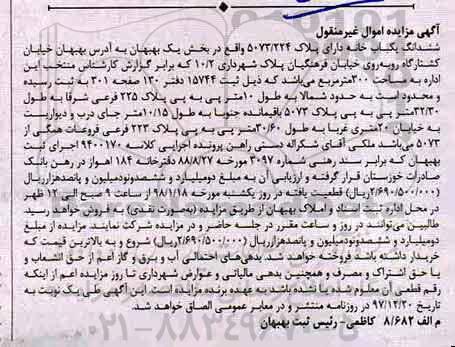 آگهی مزایده اموال غیرمنقول
ششدانگ یکباب خانه دارای پلاک ۵۰۷۳/۲۲۴ واقع در بخش یک بهبهان به آدرس بهبهان خیابان
کشتارگاه روبه‌روی خیابان فرهنگیان پلاک شهرداری ۱۰/۲ که برابر گزارش کارشناس منتخب این
اداره به مساحت ۳۰۰مترمربع می‌باشد که ذیل ثبت ۱۵۷۴۴ دفتر ۱۳۰ صفحه ۳۰۱ به ثبت رسیده
و محدود است به حدود شمالا به طول ۱۰متر پی به پی پلاک ۲۲۵ فرعی شرقا به طول
۳۲/۳۰متر پی به پی پلاک ۵۰۷۳ باقیمانده جنوبا به طول ۱۰/۱۵متر جای درب و دیواریست
به خیابان ۲۰متری غربا به طول ۳۰/۶۰متر پی به پی پلاک ۲۲۳ فرعی فروعات همگی از
۵۰۷۳ می‌باشد ملکی آقای شکراله دستی راهن پرونده اجرایی کلاسه ۹۴۰۰۱۷۰ اجرای ثبت
بهبهان که برابر سند رهنی شماره ۳۰۹۷ مورخه ۸۸/۸/۲۷ دفترخانه ۱۸۴ اهواز در رهن بانک
صادرات خوزستان قرار گرفته و ارزیابی آن به مبلغ دومیلیارد و ششصدونودمیلیون و پانصدهزارریال
(۲/۶۹۰/۵۰۰/۰۰۰ریال) قطعیت یافته در روز یکشنبه مورخه ۹۸/۱/۱۸ از ساعت ۹ صبح الی ۱۲ ظهر
در محل اداره ثبت اسناد و املاک بهبهان از طریق مزایده (بصورت نقدی) به فروش خواهد رسید
طالبین می‌توانند در روز و ساعت مقرر در جلسه حاضر و در مزایده شرکت نمایند. مزایده از مبلغ
دومیلیارد و ششصدونودمیلیون و پانصدهزارریال (۲/۶۹۰/۵۰۰/۰۰۰ریال) شروع و به بالاترین قیمت که
خریدار داشته باشد فروخته خواهد شد. بدهی‌های احتمالی آب و برق و گاز اعم از حق انشعاب و
یا حق اشتراک و مصرف و همچنین بدهی مالیاتی و عوارض شهرداری تا روز مزایده اعم از اینکه
رقم قطعی آن معلوم شده یا نشده باشد به عهده برنده مزایده است. این آگهی طی یک نوبت به
تاریخ ۹۷/۱۲/۲۰ در روزنامه منتشر و در معابر عمومی الصاق خواهد شد.
م الف ۸/۶۸۲ کاظمی- رئیس ثبت بهبهان
۰۲۱-۸۸۳۴۹۶۷۰-۵